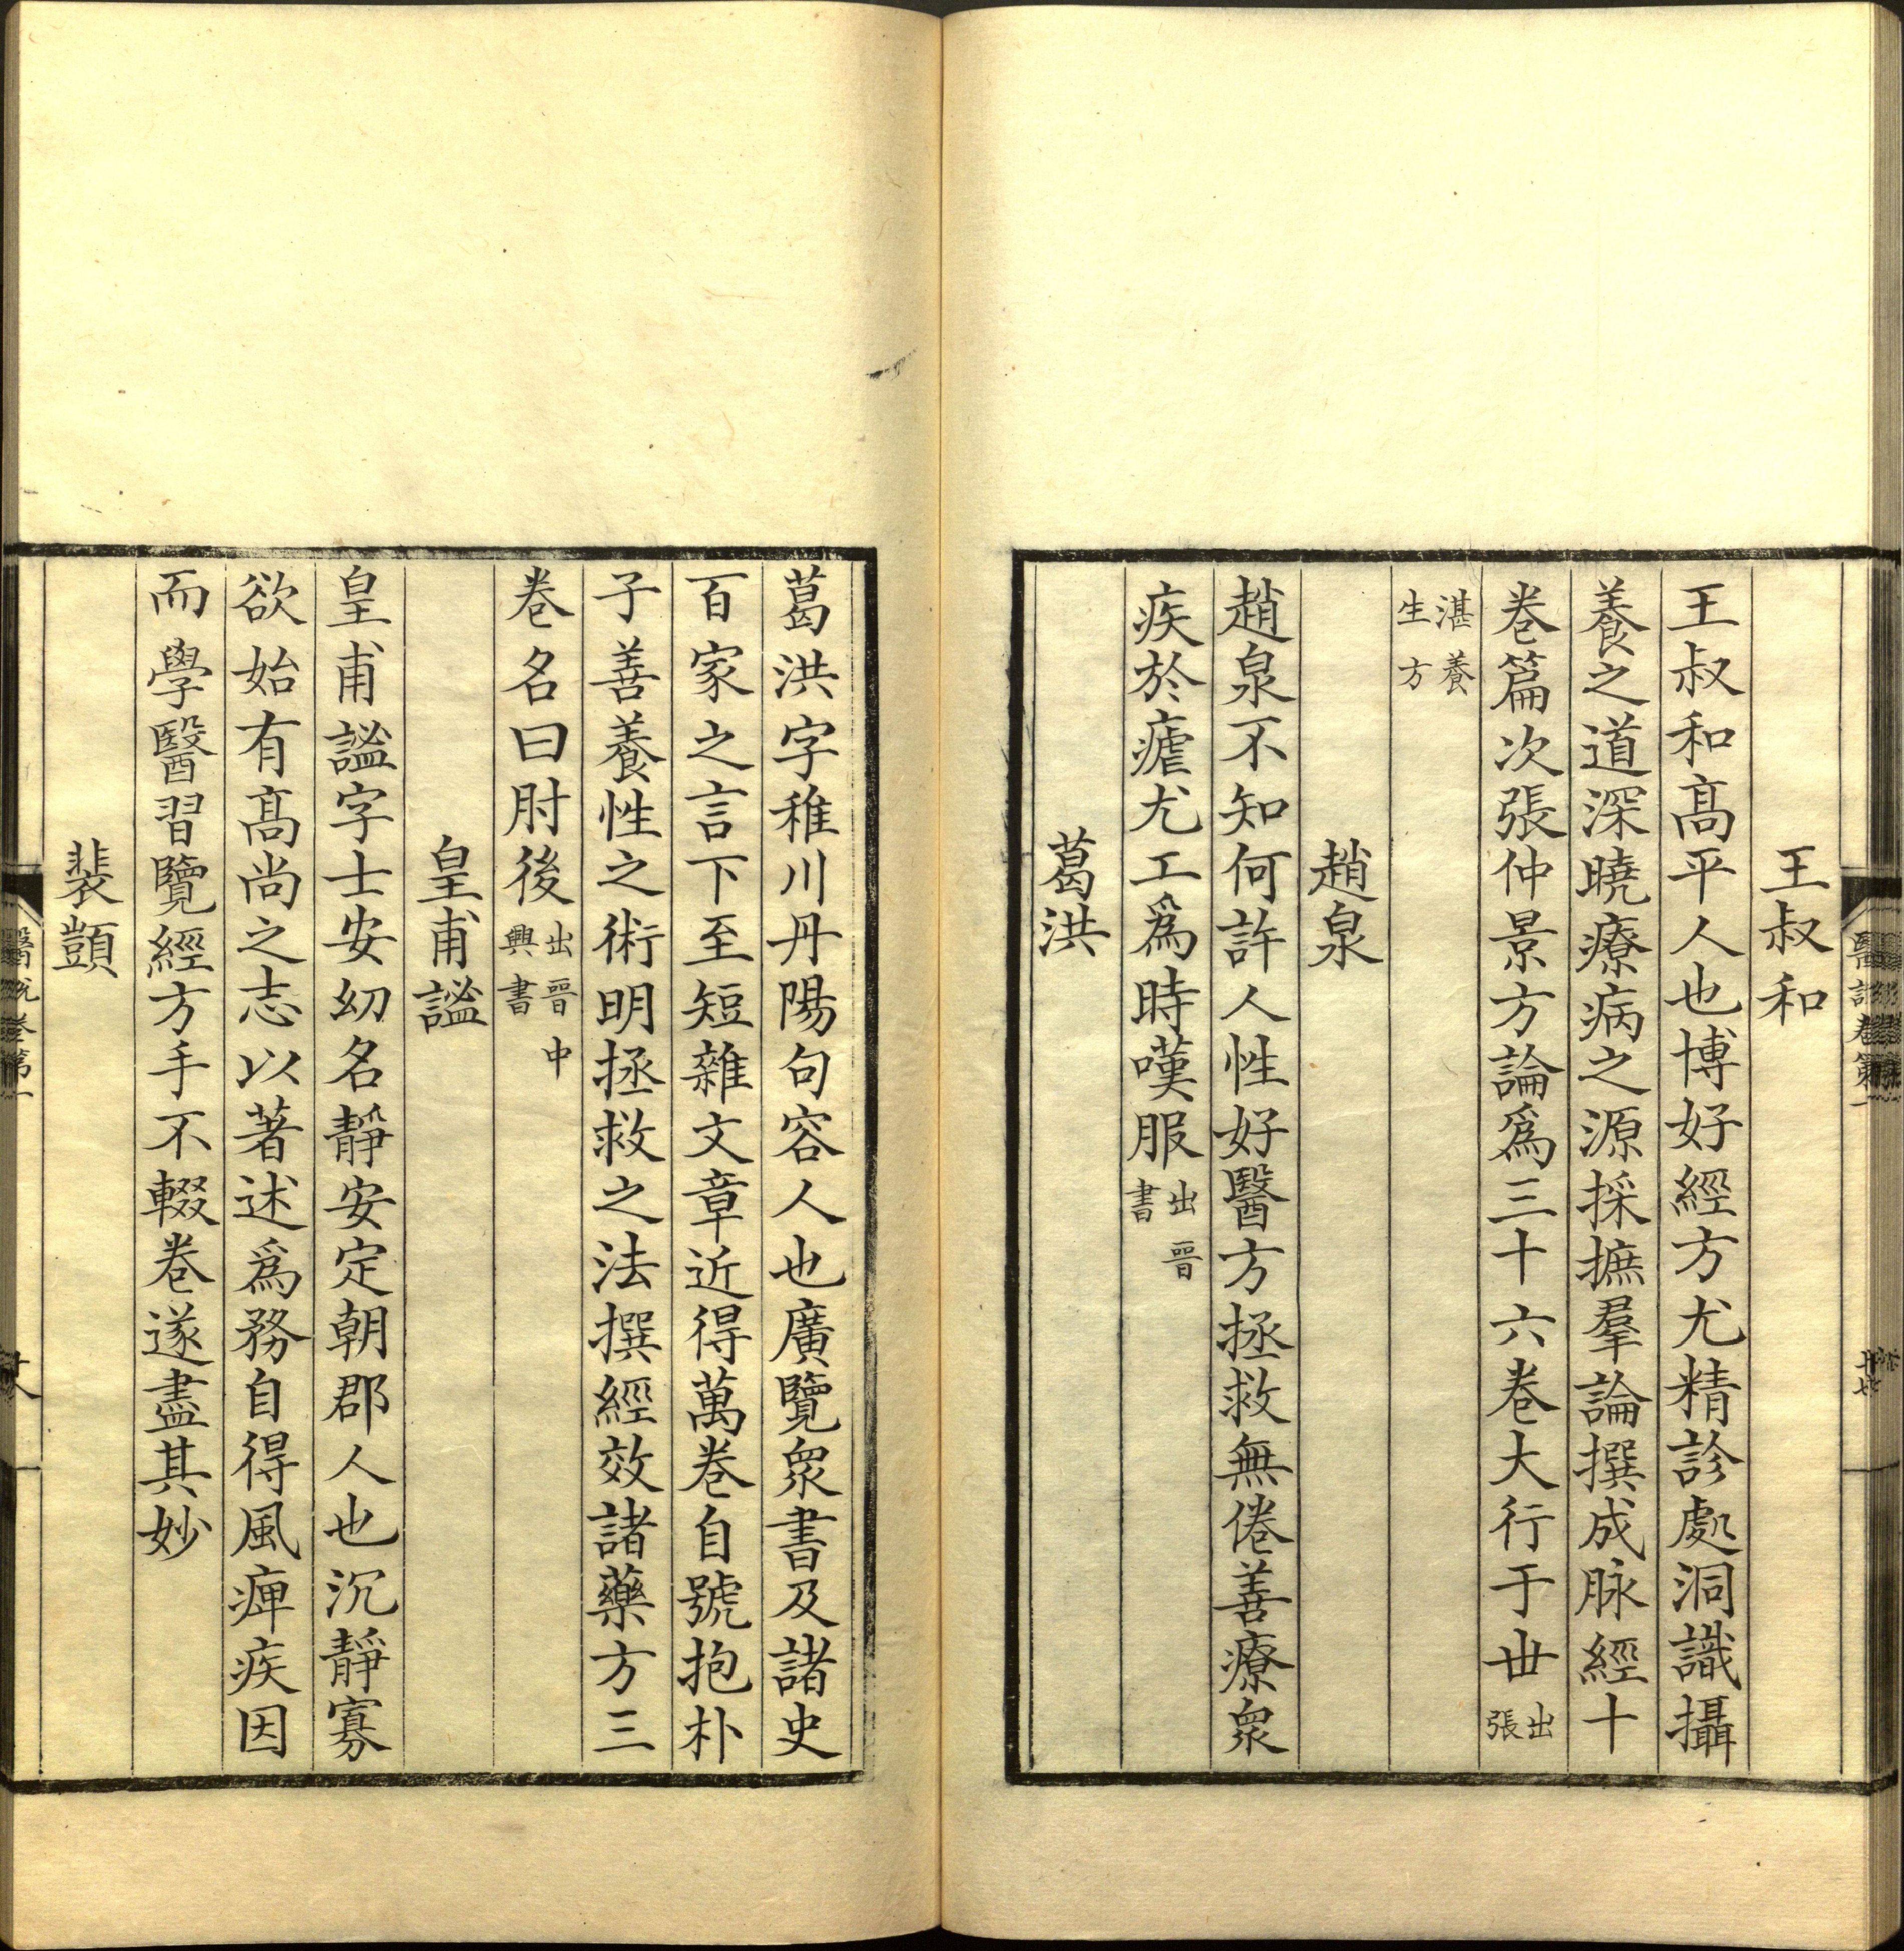 王叔和
王叔和髙平人也博好經方尤精診處洞識攝
養之道深曉療病之源採摭羣論撰成脉經十
卷篇次張仲景方論爲三十六卷大行于丗出張
湛養生方
趙泉
趙泉不知何許人性好醫方拯救無倦善療衆
疾於瘧尤工爲時嘆服出晉書
葛洪
葛洪字稚川丹陽句容人也廣覽衆書及諸史
百家之言下至短雜文章近得萬卷自號抱朴
子善養性之術明拯救之法撰經效諸藥方三
卷名曰肘後出晉中興書
皇甫謐
皇甫謐字士安幼名靜安定朝郡人也沉靜寡
欲始有髙尚之志以著述爲務自得風痺疾因
而學醫習覽經方手不輟卷遂盡其妙
裴頠